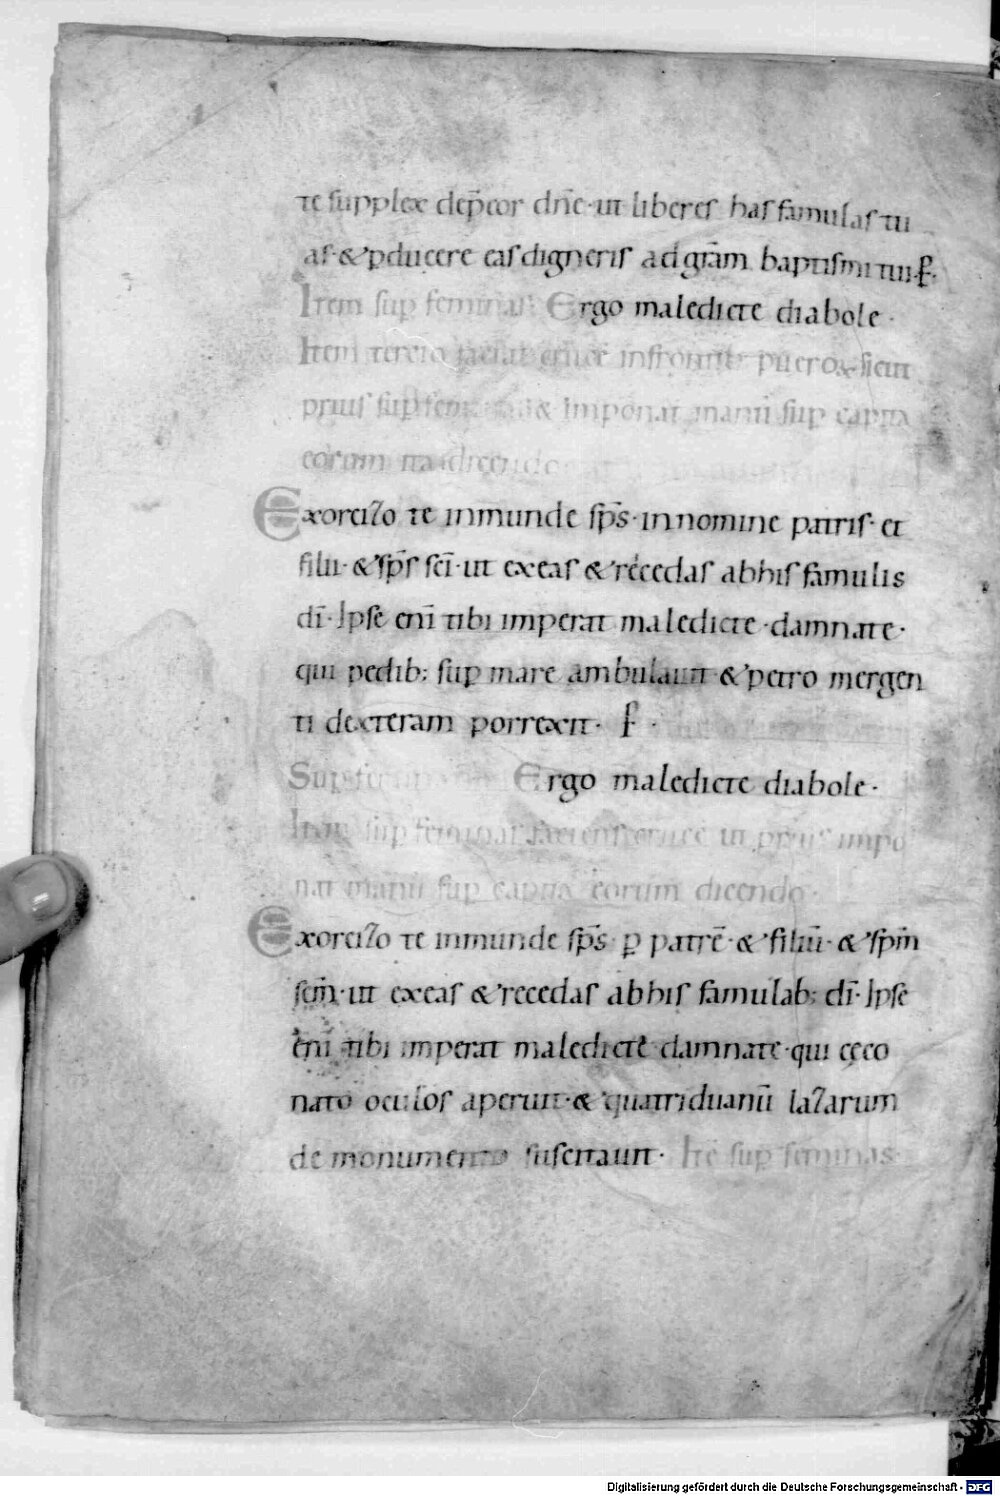 te supplex dep̄cor dn̄e· ut liberes has famulas tu
as· & pducere eas digneris ad grām baptismi tui· ꝑ.
Item sup feminas· Ergo maledicte diabole·
Item tercio faciat crucē in fronte pueroꝝ sicut
prius sup feminas & imponat manū sup capita
eorum ita dicendo
Exorcizo te inmunde sp̄s· in nomine patris· et
filii· & sp̄s sc̄i· ut exeas & recedas ab his famulis
dī· Ipse enī tibi imperat maledicte· damnate·
qui pedib; sup mare ambulauit & petro mergen
ti dexteram porrexit·
Sup Ergo maledicte diabole·
Item sup feminas faciens crucē ut prius impo
nat manū sup capita eorum dicendo·
Exorcizo te inmunde sp̄s· ꝑ patrē· & filiū· & sp̄m
sc̄m· ut exeas & recedas ab his famulab; dī· Ipse
enī tibi imperat maledicte damnate· qui cęco
nato oculos aperuit· & quatriduanū lazarum
de monumento suscitauit· Itē sup feminas·
Digitalisierung gefördert durch die Deutsche Forschungsgemeinschaft - DFG